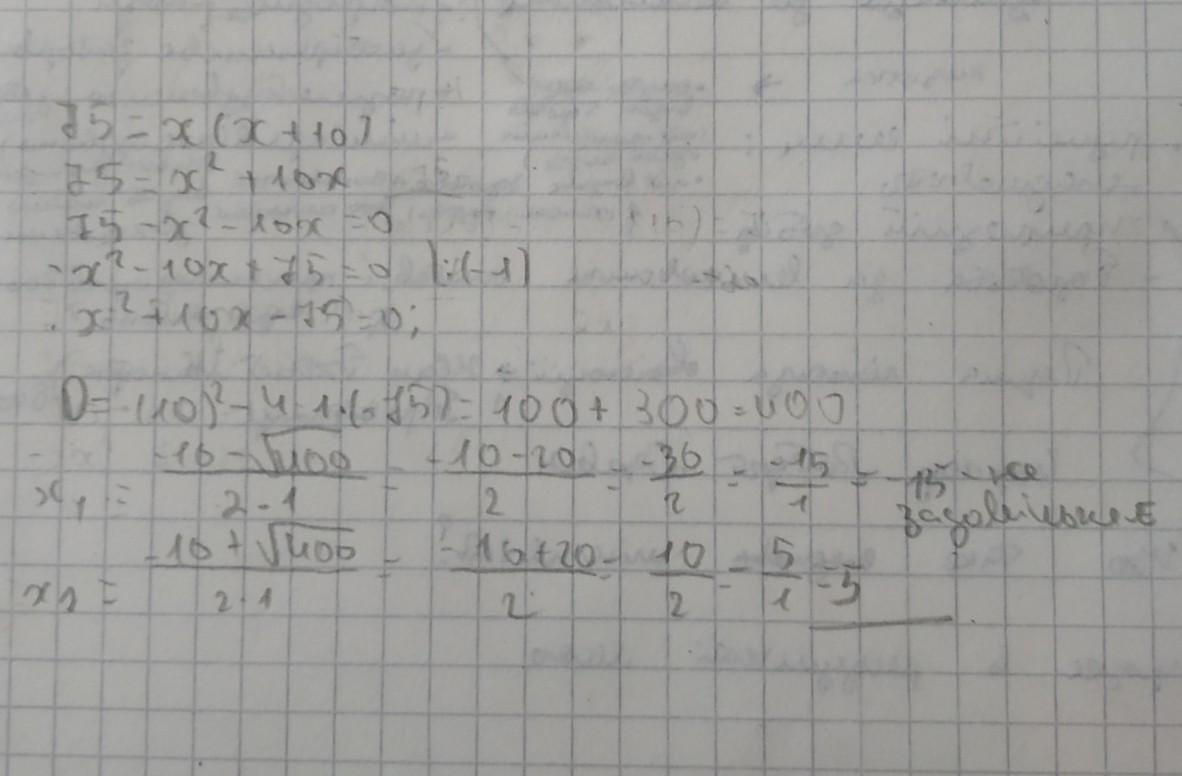 75 = x(x+10)
75 = x² + 10x
75 - x² - 10x = 0
- x² - 10x + 75 = 0 | :(-1)
x² + 10x - 75 = 0;
D = (10)² - 4·1·(-75) = 100 + 300 = 400
x₁ = -10 - √400 / 2·1 = -10-20 / 2 = -30 / 2 = -15 / 1 = -15 - не задовільняє
x₂ = -10 + √400 / 2·1 = -10+20 / 2 = 10 / 2 = 5 / 1 = 5